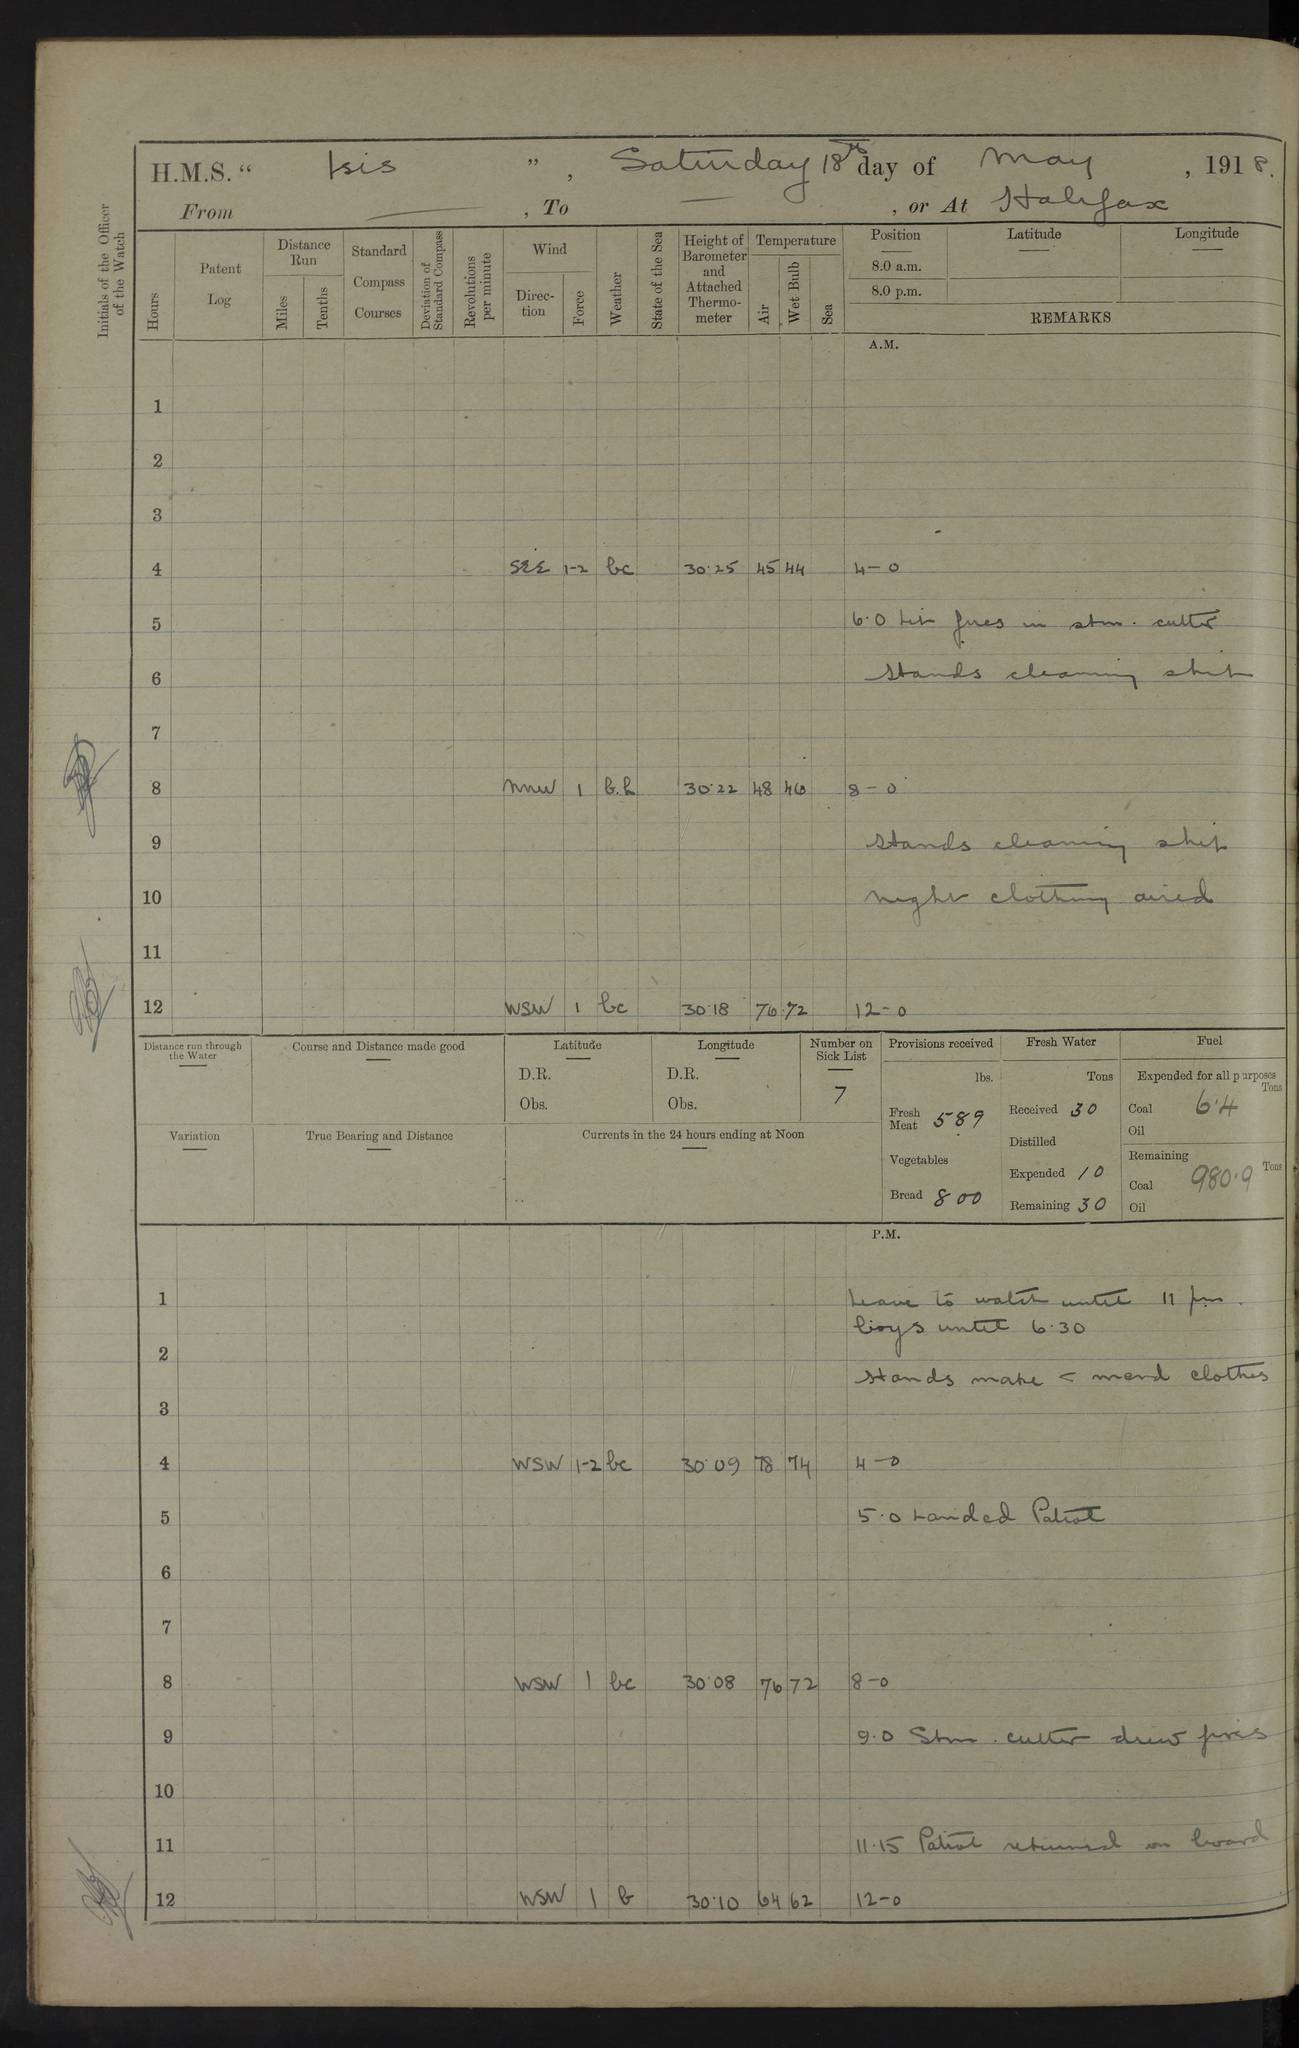 H.M.S. " Isis ", Saturday 18th day of May, 1918.
From — , To — , or At Halifax
Initials of the Officer of the Watch
Hours
Patent Log
Distance Run
Miles
Tenths
Standard Compass Courses
Deviation of Standard Compass
Revolutions per minute
Wind
Direction
Force
Weather
State of the Sea
Height of Barometer and Attached Thermometer
Temperature
Air
Wet Bulb
Sea
Position
8.0 a.m.
8.0 p.m.
Latitude
Longitude
REMARKS
A.M.
1
2
3
4 1-2 bc 30.25 45 44 4-0
5 6.0 Lit fires in stm. cutter
6 Hands cleaning ship
7
8 NNW 1 b.h 30.22 48 46 8-0
9 Hands cleaning ship
10 Night clothing aired
11
12 WSW 1 bc 30.18 76 72 12-0
Distance run through the Water
Course and Distance made good
Latitude
D.R.
Obs.
Longitude
D.R.
Obs.
Number on Sick List
7
Provisions received
lbs.
Fresh Meat 589
Vegetables
Bread 800
Fresh Water
Tons
Received 30
Distilled
Expended 10
Remaining 30
Fuel
Expended for all purposes
Tons
Coal 6.4
Oil
Remaining
Tons
Coal 980.9
Oil
Variation
True Bearing and Distance
Currents in the 24 hours ending at Noon
P.M.
1 Leave to watch until 11 pm.
boys until 6.30
2
Hands make & mend clothes
3
4 WSW 1-2 bc 30.09 78 74 4-0
5 5.0 Landed Patrol
6
7
8 WSW 1 bc 30.08 76 72 8-0
9 9.0 Stm. cutter drew fires
10
11 11.15 Patrol returned on board
12 WSW 1 b 30.10 64 62 12-0